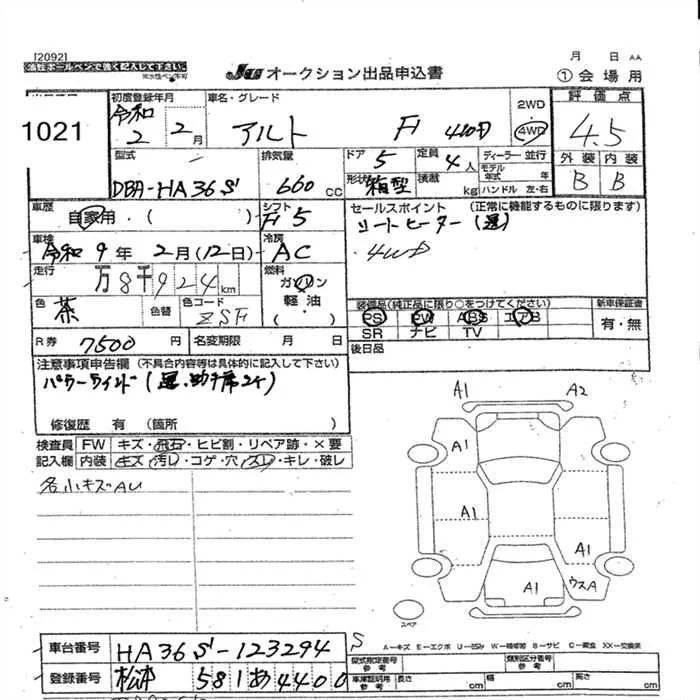 [2092]
油性ボールペンで強く記入して下さい。
※水性ペン不可
JU オークション出品申込書
月 日 AA
①会場用
1021
初度登録年月
令和 2 2月
車名・グレード
アルト F 4WD
2WD
4WD
評価点
4.5
型式
DBA-HA36S
排気量
660cc
ドア 5
定員 4人
ディーラー 並行
形状 箱型
積載 kg
モデル年式 年
ハンドル 左・右
外装 内装
B B
車歴
自家用・( )
シフト
F5
セールスポイント (正常に機能するものに限ります)
シートヒーター(運)
4WD
車検
令和9年2月(12日)
冷房
AC
走行
万8千924km
燃料
ガソリン
軽油
( )
色
茶
色替
色コード
ZSF
装備品(純正品に限り○をつけてください)
PS PW ABS エアB
SR ナビ TV
新車保証書
有・無
R券 7500円
名変期限 月 日
後日品
注意事項申告欄 (不具合内容等は具体的に記入して下さい)
パワーウインド(運、助手席2ヶ)
修復歴 有 (箇所 )
検査員 FW キズ・飛石・ヒビ割・リペア跡・×要
記入欄 内装 キズ・汚レ・コゲ・穴・スレ・キレ・破レ
各小キズAU
A1 A2
A1
A1
A1
A1 ウスA
スペア
A－キズ E－エクボ U－凹み W－補修跡 B－サビ C－腐食 XX－交換済
車台番号 HA36S-123294 S
登録番号 松本 581 あ 4400
型式指定番号
参考
類別区分番号
参考
車庫証明用
参考
長さ cm
幅 cm
高さ cm